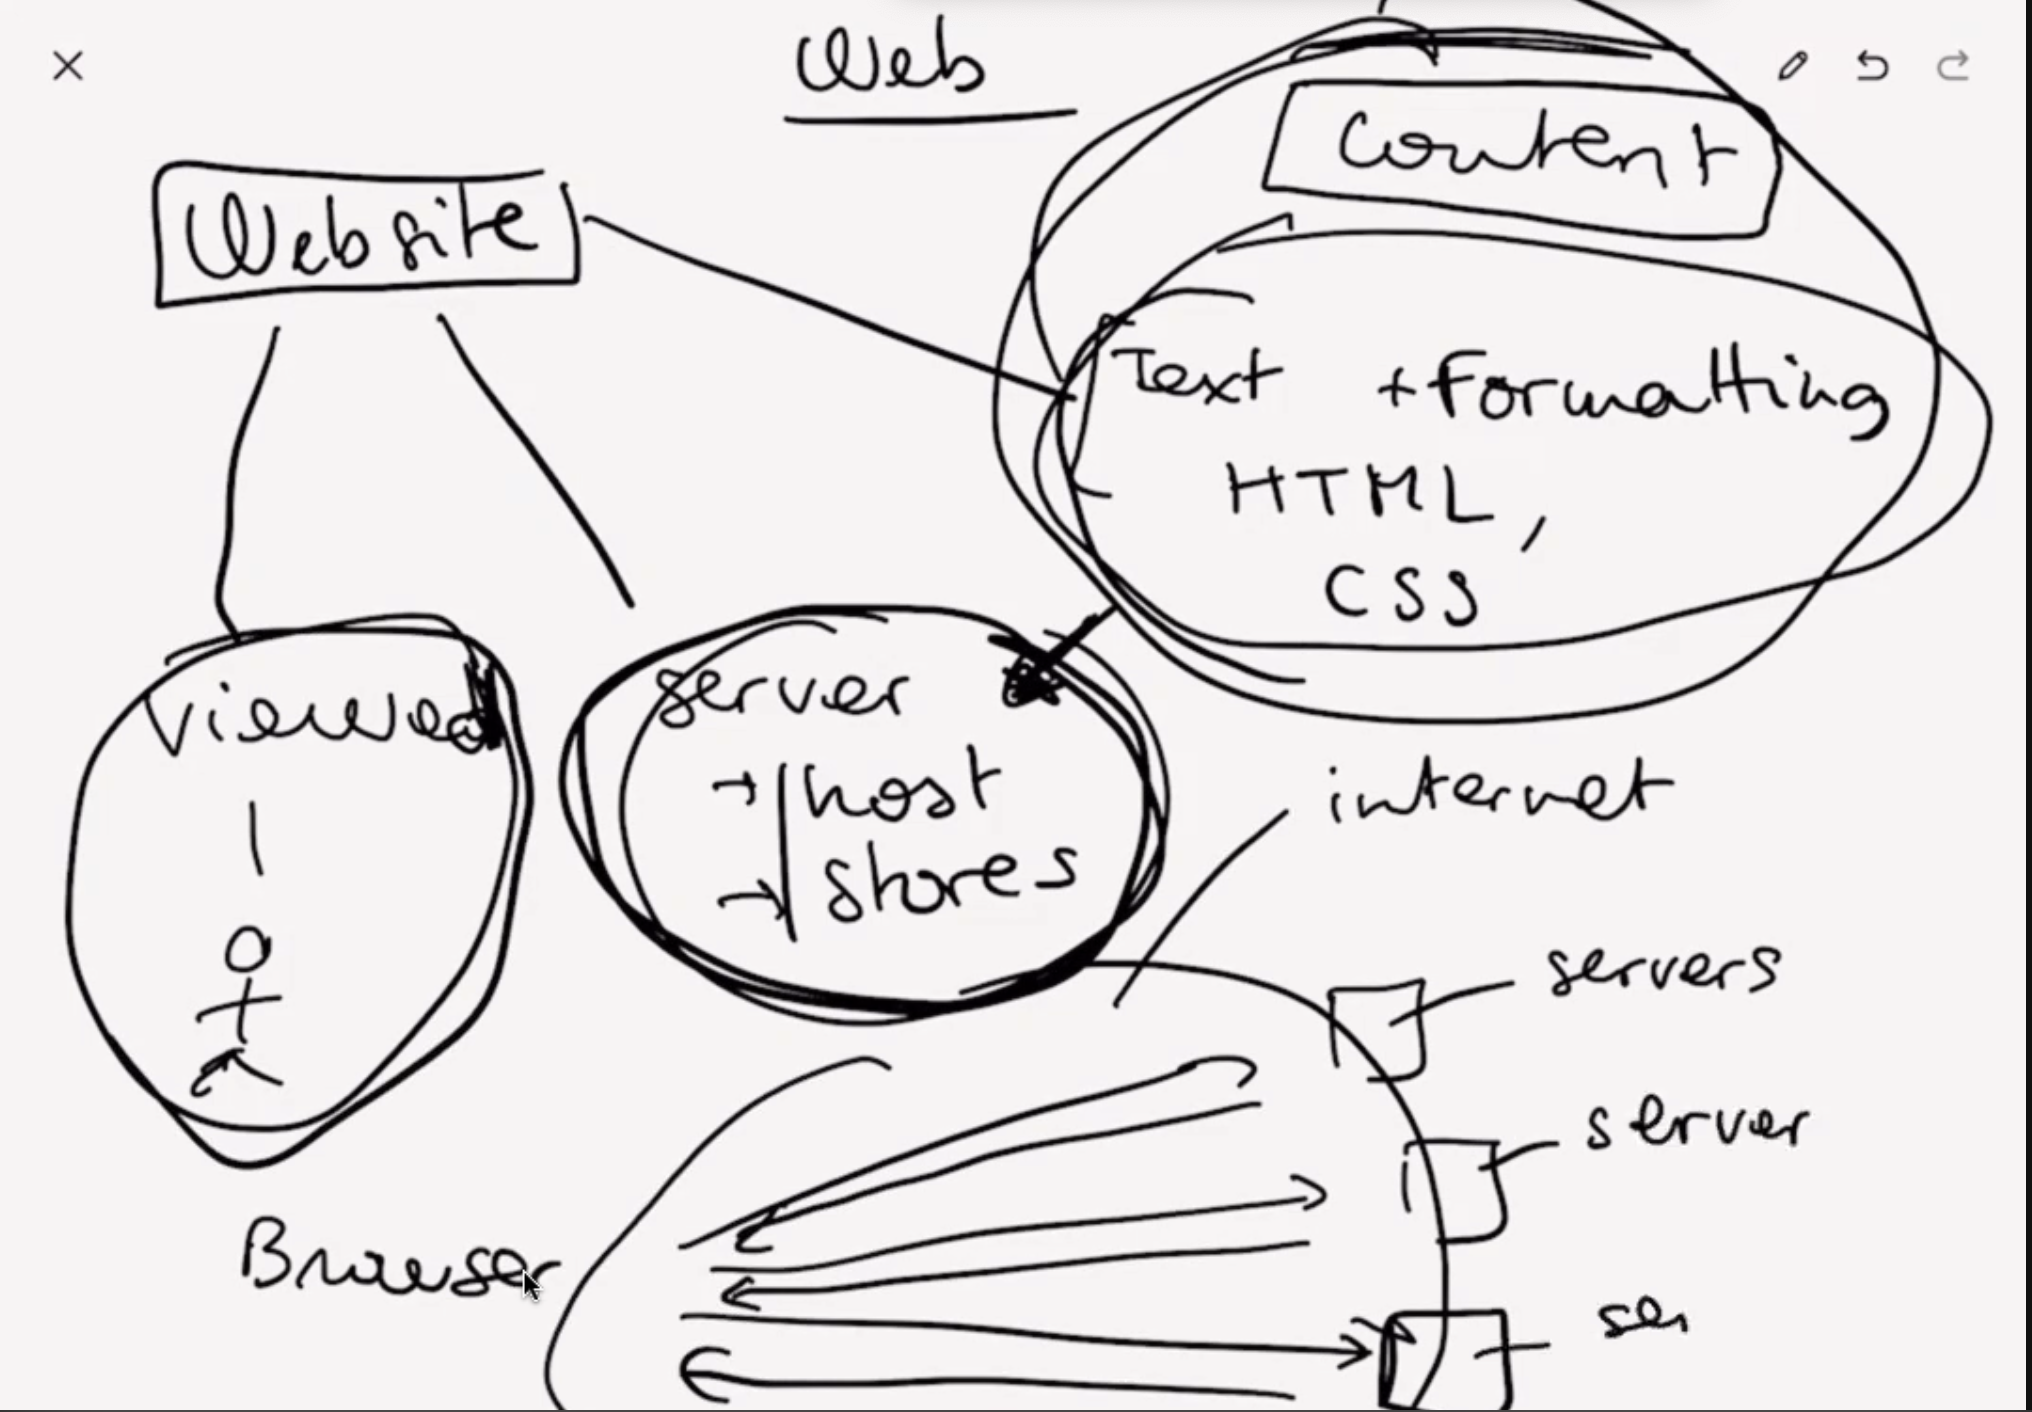 Web
Content
Website
Text + Formatting
HTML,
CSS
Viewed
server
→ host
→ stores
internet
servers
server
Browser
ser